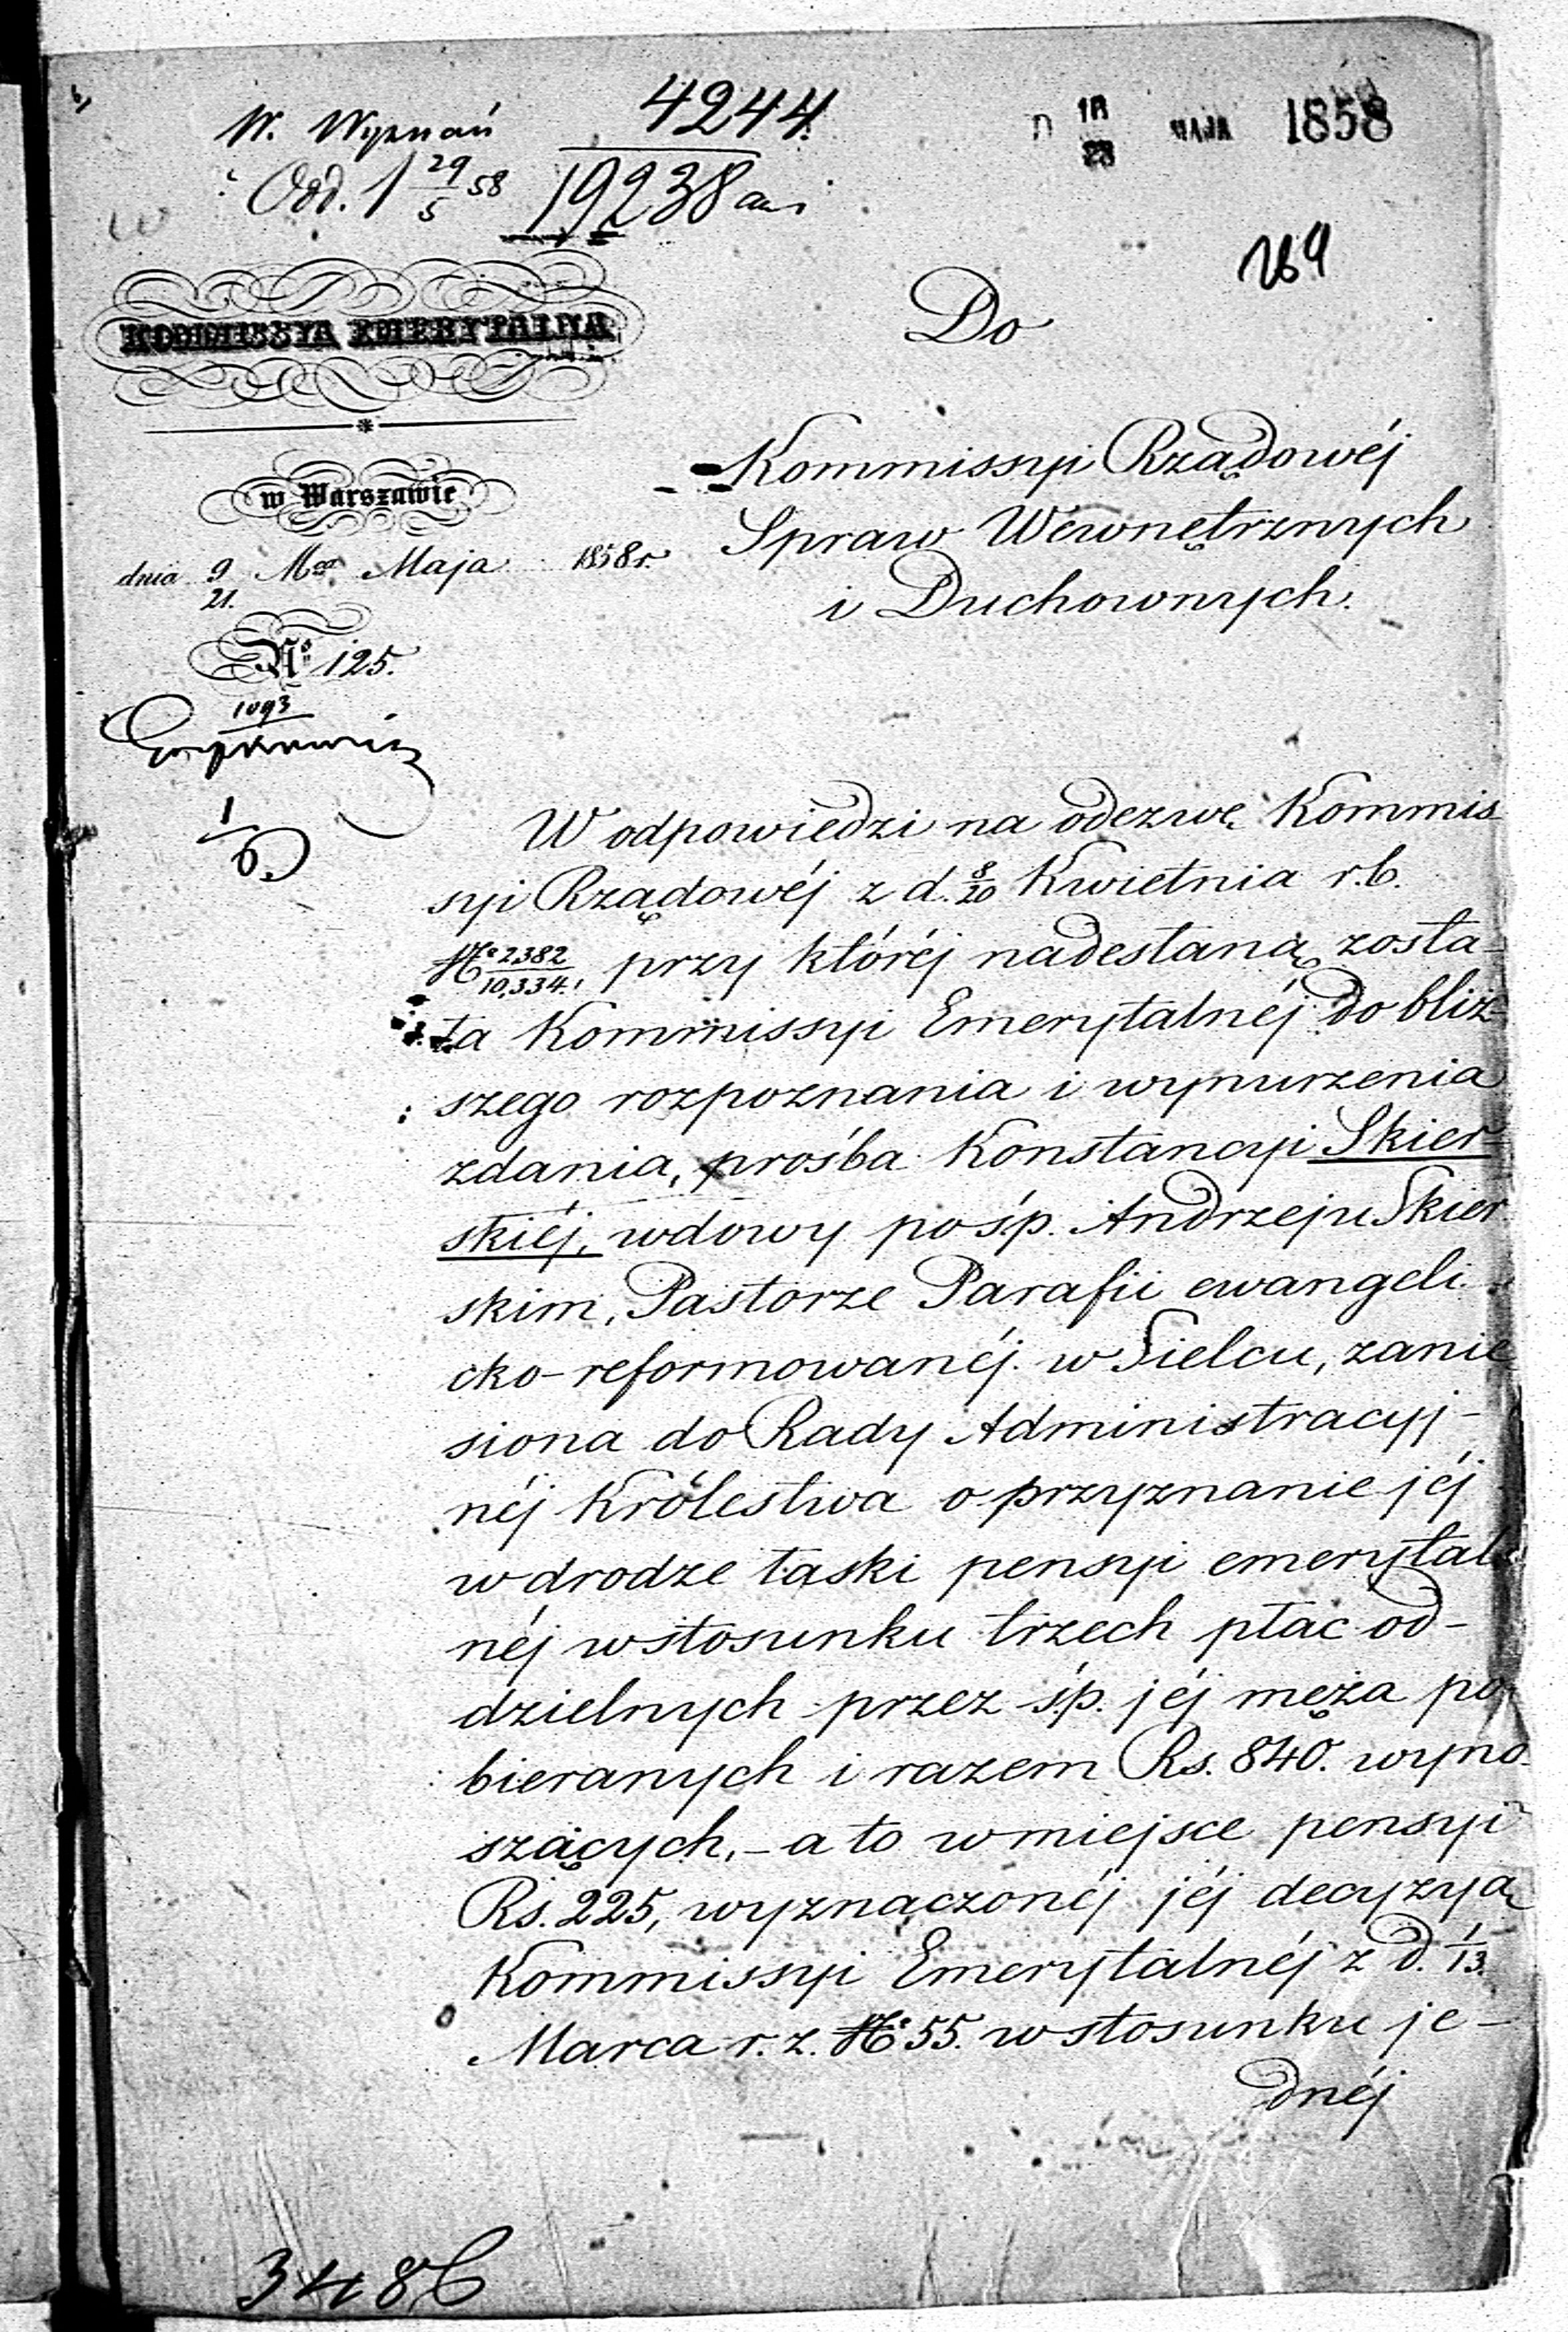 W. Wyznań
4244
19238
Odd. 1 29/5 58
D 16/28 MAJA 1858
KOMMISSYA EMERYTALNA
w Warszawie
dnia 9/21. Mca Maja 1858 r.
No 125.
1093
1/6
Do
Kommissyi Rządowéj
Spraw Wewnętrznych
i Duchownych.
W odpowiedzi na odezwę Kommis
syi Rządowéj z d. 8/20 Kwietnia r.b.
No 2382/10,334., przy któréj nadesłaną zosta-
ła Kommissyi Emerytalnéj do bliż-
szego rozpoznania i wynurzenia
zdania, prośba Konstancyi Skier-
skiéj, wdowy po ś.p. Andrzeju Skier
skim, Pastorze Parafii ewangeli-
cko-reformowanéj w Sielcu, zanie
siona do Rady Administracyj-
néj Królestwa o przyznanie jéj
w drodze łaski pensyi emerytal-
néj w stosunku trzech płac od-
dzielnych przez ś.p. jéj męża po-
bieranych i razem Rs. 840. wyno-
szących, - a to w miejsce pensyi
Rs. 225, wyznaczonéj jéj decyzyą
Kommissyi Emerytalnéj z d. 1/13.
Marca r. z. No 55. w stosunku je-
dnéj